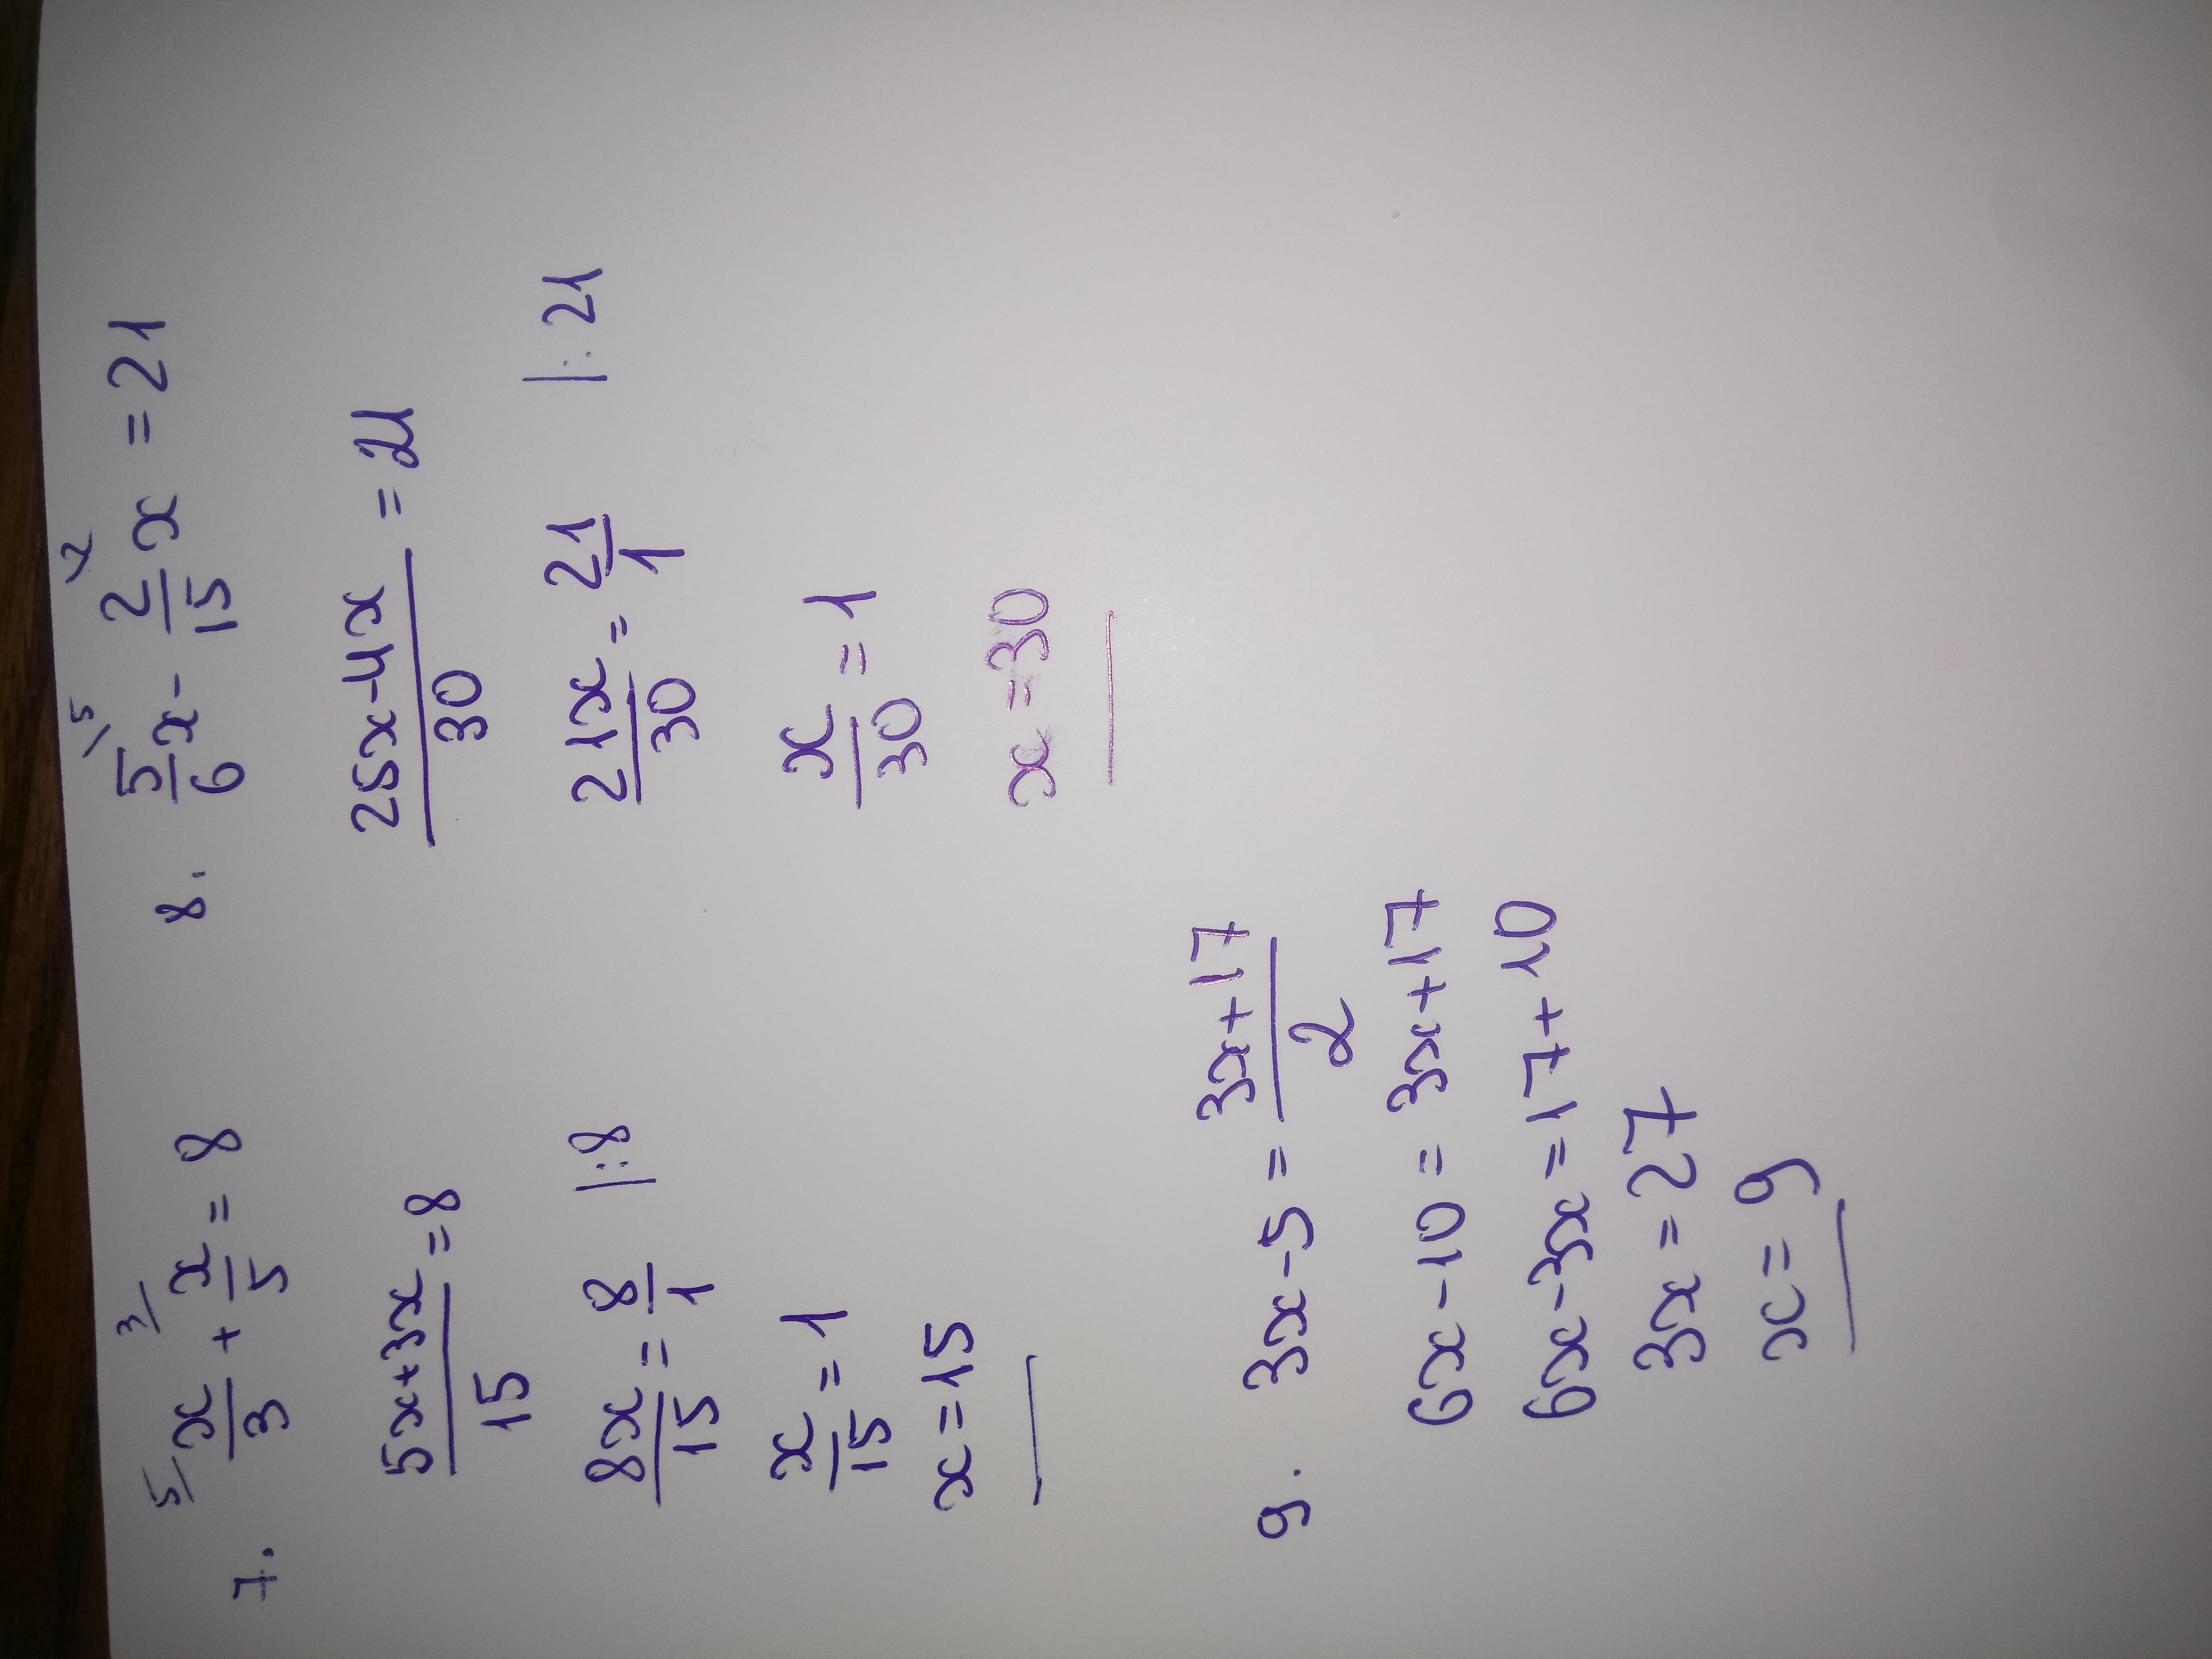 7. 5/ x/3 + 3/ x/5 = 8
(5x+3x)/15 = 8
8x/15 = 8/1 |:8
x/15 = 1
x = 15
8. 5/6 \5 x - 2/15 \2 x = 21
(25x-4x)/30 = 21
21x/30 = 21/1 |:21
x/30 = 1
x = 30
9. 3x-5 = (3x+17)/2
6x-10 = 3x+17
6x-3x = 17+10
3x = 27
x = 9